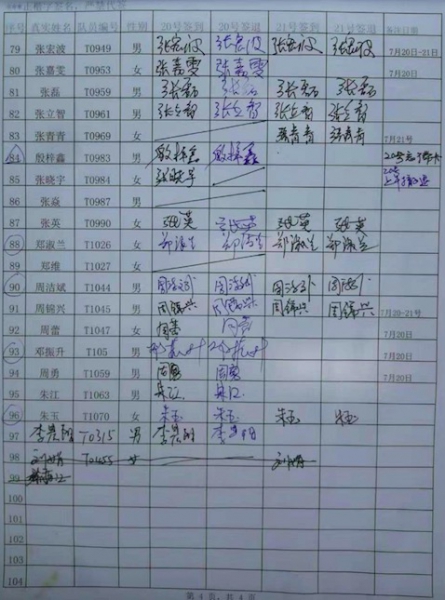 序号 真实姓名 队员编号 性别 20号签到 20号签退 21号签到 21号签退 备注日期
79 张宏波 T0949 男 张宏波 张宏波 张宏波 张宏波 7月20日-21日
80 张嘉雯 T0953 女 张嘉雯 张嘉雯 7月20日
81 张磊 T0959 男 张磊 张磊 张磊 张磊
82 张立智 T0961 男 张立智 张立智 张立智 张立智
83 张青青 T0969 女 张青青 张青青 7月21号
84 殷梓鑫 T0983 男 殷梓鑫 殷梓鑫
85 张晓宇 T0984 女 张晓宇
86 张焱 T0987 男
87 张英 T0990 女 张英 张英 张英 张英
88 郑淑兰 T1026 女 郑淑兰 郑淑兰 郑淑兰 郑淑兰
89 郑维 T1027 女
90 周洁斌 T1044 男 周洁斌 周洁斌 周洁斌 周洁斌
91 周锦兴 T1045 男 周锦兴 周锦兴 周锦兴 周锦兴 7月20-21号
92 周蕾 T1047 女 周蕾 周蕾 7月20日
93 邓振升 T105 男 邓振升 邓振升 7月20日
94 周勇 T1059 男 周勇 周勇 7月20日
95 朱江 T1063 男 朱江 朱江
96 朱玉 T1070 女 朱玉 朱玉 朱玉 朱玉
97 T0315 男
98 T0455 女
99
100
101
102
103
104
第 4 页，共 4 页